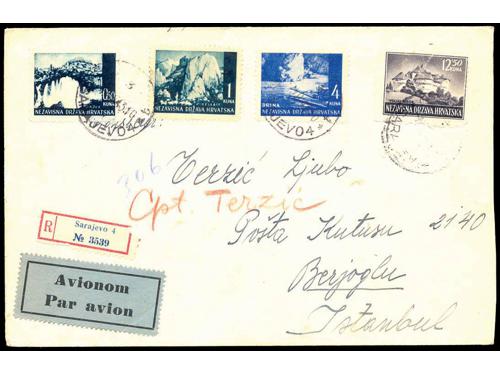 0.50 KUNA
NEZAVISNA DRŽAVA HRVATSKA
VELEBIT
1 KUNA
NEZAVISNA DRŽAVA HRVATSKA
DRINA
4 KUNA
NEZAVISNA DRŽAVA HRVATSKA
12.50 KUNA
NEZAVISNA DRŽAVA HRVATSKA
SARAJEVO 4
306
Terzić Ljubo
Cpt. Terzić
R
Sarajevo 4
№ 3539
Pošta Kutusu 2140
Avionom
Par avion
Berjoglu
Istanbul